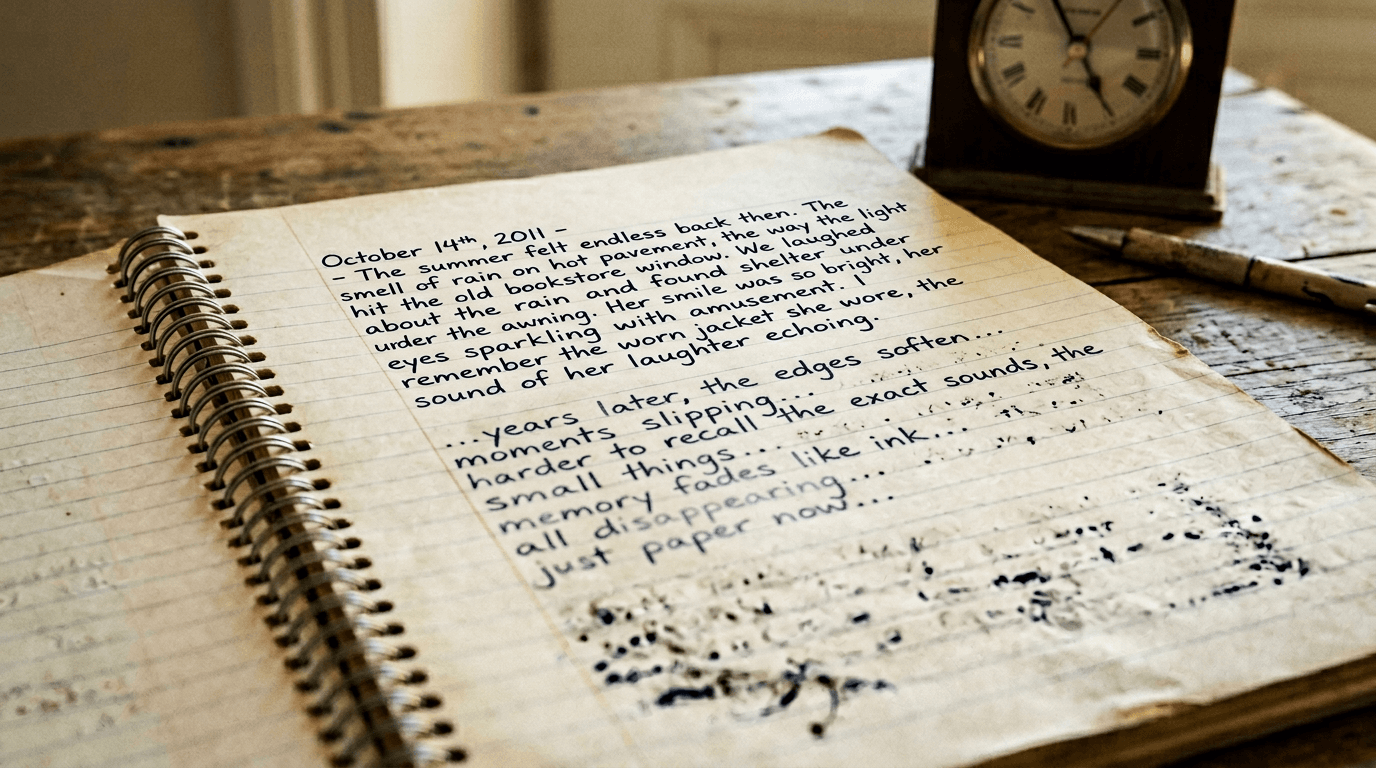 October 14th, 2011 –
– The summer felt endless back then. The
smell of rain on hot pavement, the way the light
hit the old bookstore window. We laughed
about the rain and found shelter under
urder the awning. Her smile was so bright, her
eyes sparkling with amusement. I
remember the worn jacket she wore, the
sound of her laughter echoing.
...years later, the edges soften...
moments slipping...
harder to recall the exact sounds, the
small things...
memory fades like ink...
all disappearing...
just paper now...